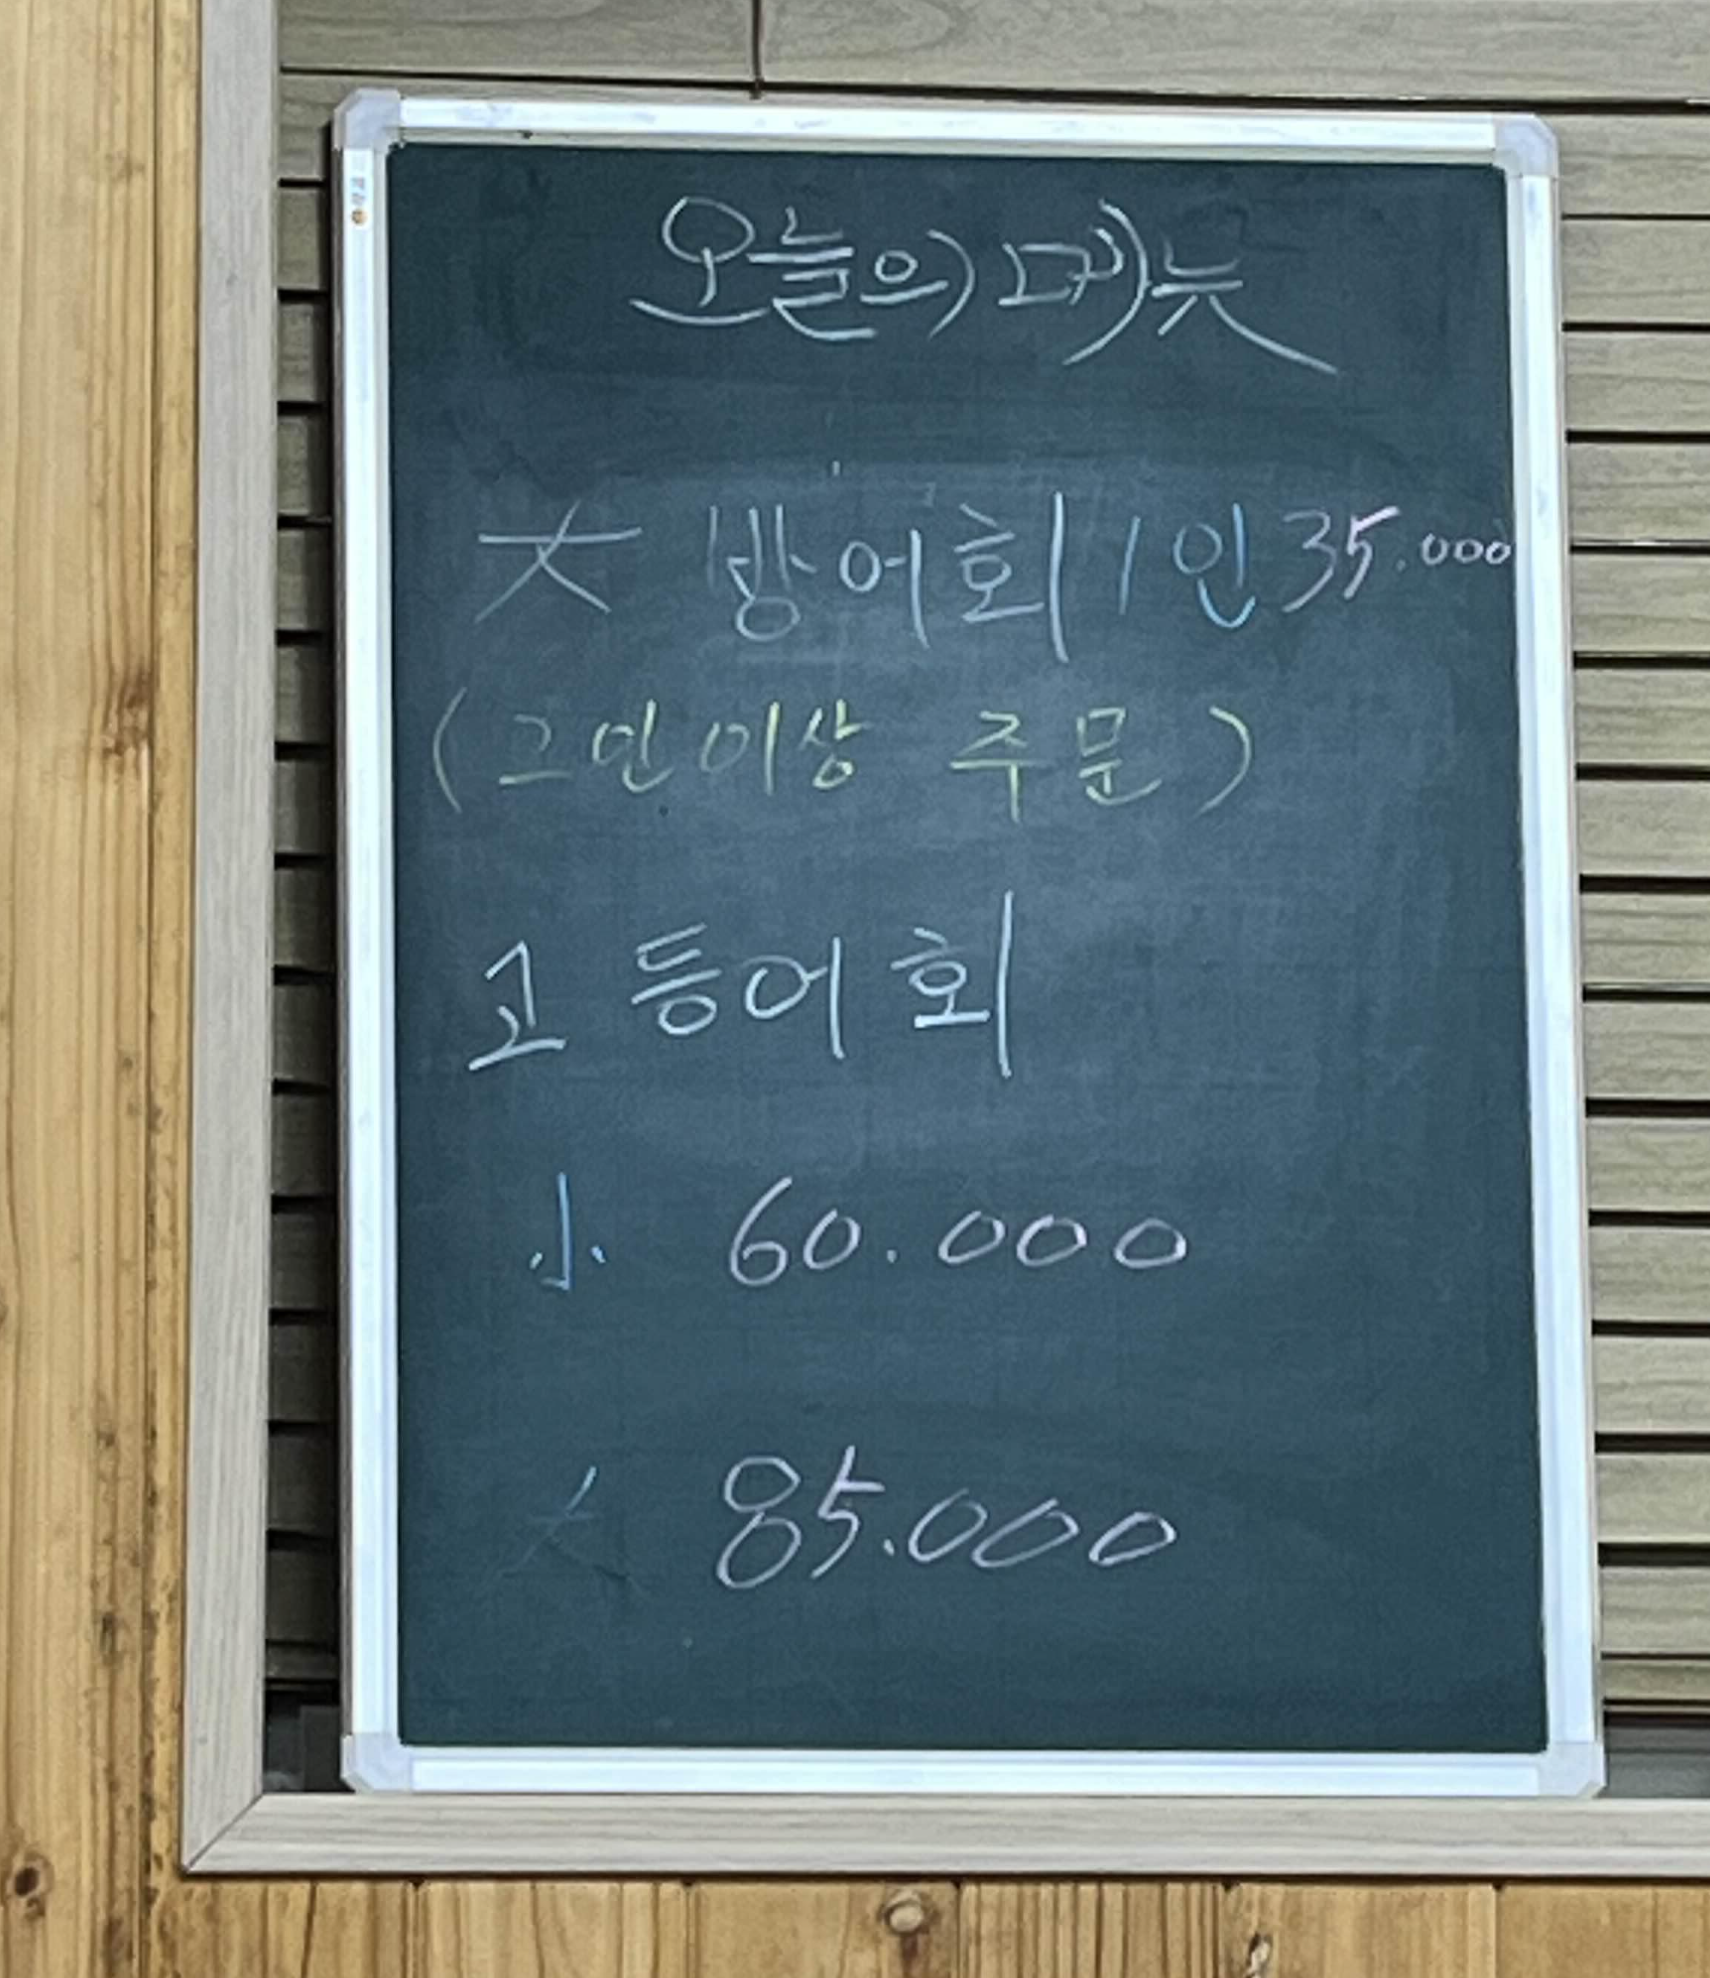 오늘의 메뉴
大 방어회 1인 35.000
(2인이상 주문)
고등어회
小 60.000
大 85.000